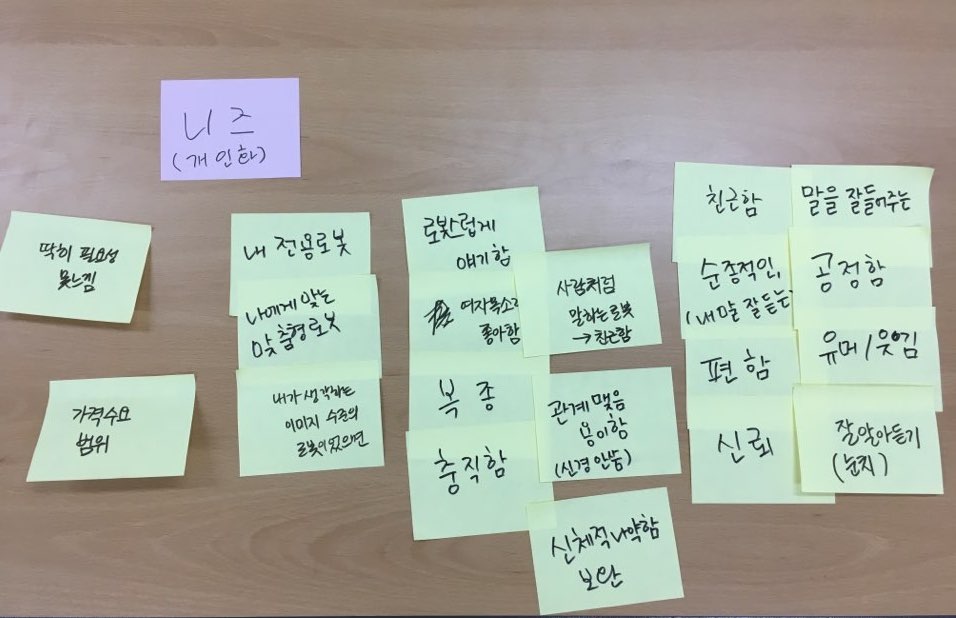 니즈
(개인화)
딱히 필요성
못느낌
가격수요
범위
내 전용로봇
나에게 맞는
맞춤형로봇
내가 생각하는
이미지 수준의
로봇이있으면
로봇스럽게
얘기함
여자목소리
좋아함
복종
충직함
사람처럼
말하는 로봇
→ 친근함
관계 맺음
용이함
(신경 안씀)
신체적나약함
보완
친근함
순종적인,
(내말 잘듣는)
편함
신뢰
말을 잘들어주는
공정함
유머/웃김
잘알아듣기
(눈치)